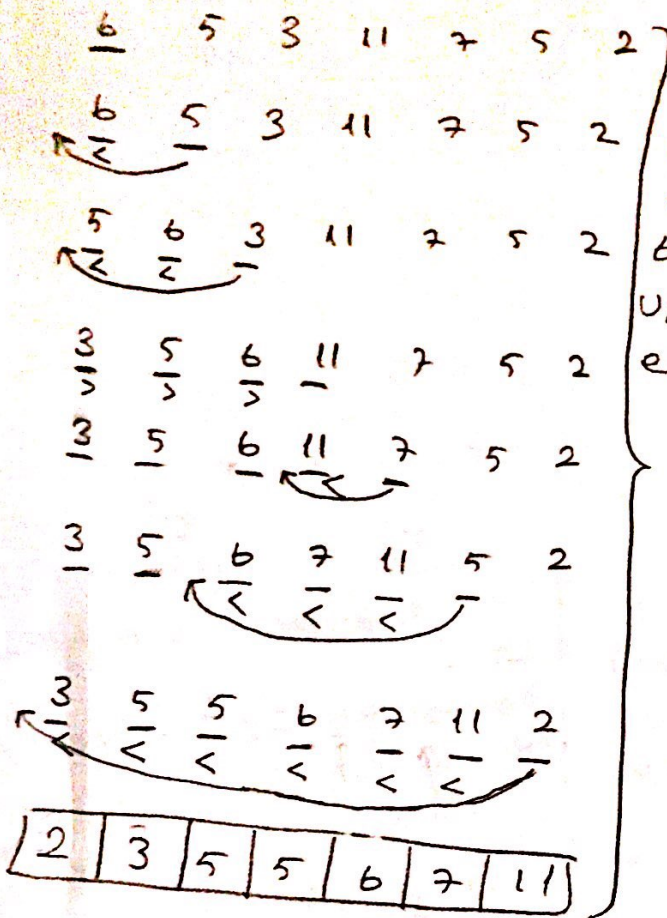 6 5 3 11 7 5 2
6 5 3 11 7 5 2
<
5 6 3 11 7 5 2
< <
3 5 6 11 7 5 2
> > >
3 5 6 11 7 5 2
<
3 5 6 7 11 5 2
< < <
3 5 5 6 7 11 2
< < < < < <
2 3 5 5 6 7 11